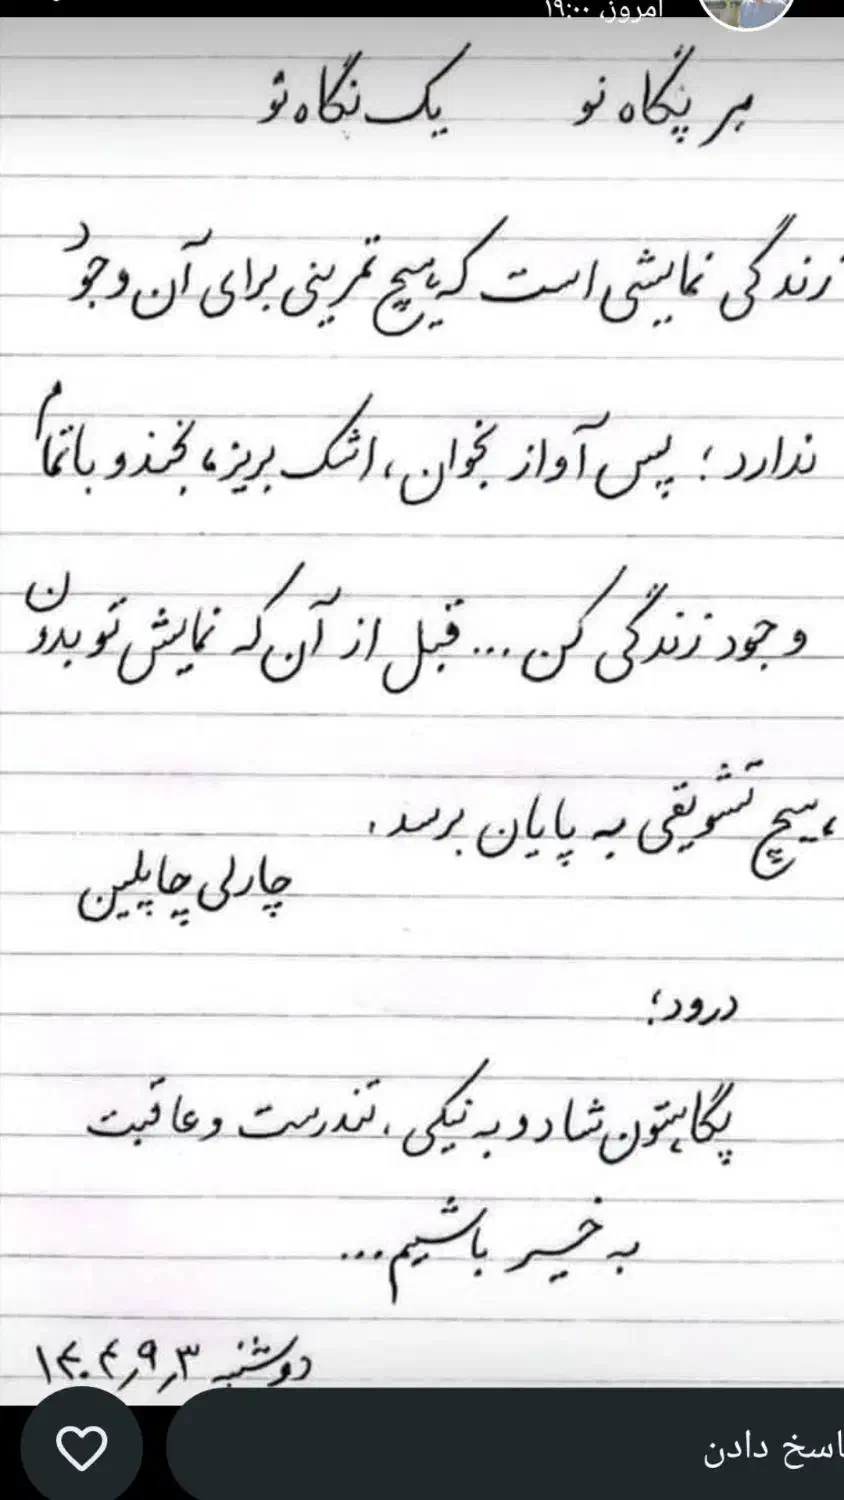 امروز، ۱۹:۰۰
هر پگاه نو یک نگاه نو
زندگی نمایشی است که هیچ تمرینی برای آن وجود
ندارد؛ پس آواز بخوان، اشک بریز، بخند و با تمام
وجود زندگی کن... قبل از آن که نمایش تو بدون
هیچ تشویقی به پایان برسد.
چارلی چاپلین
درود؛
پگاهتون شاد و به نیکی، تندرست و عاقبت
به خیر باشیم...
دوشنبه ۱۴۰۴٫۹٫۳
پاسخ دادن